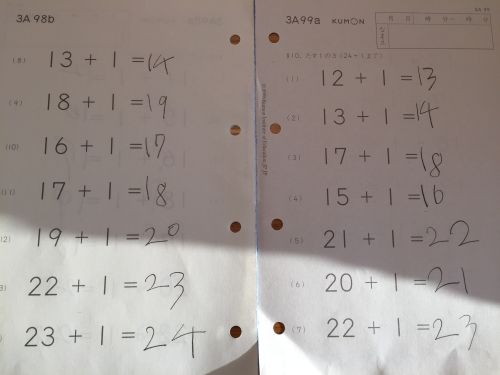 3A 98b
(8) 13 + 1 = 14
(9) 18 + 1 = 19
(10) 16 + 1 = 17
(11) 17 + 1 = 18
12) 19 + 1 = 20
3) 22 + 1 = 23
) 23 + 1 = 24
3A 99a KUMON 月 日 時 分〜 時 分
なまえ
(1) 12 + 1 = 13
(2) 13 + 1 = 14
(3) 17 + 1 = 18
(4) 15 + 1 = 16
(5) 21 + 1 = 22
(6) 20 + 1 = 21
(7) 22 + 1 = 23